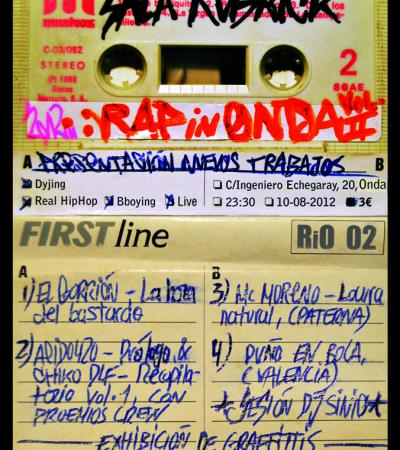 SALA RUBRICK
C-03/052
STEREO
(P) 1985
Discos
2
SGAE
RAP in ONDA II
A PRESENTASIÓN NUEVOS TRABAJOS B
Dyjing
C/Ingeniero Echegaray, 20, Onda
Real HipHop Bboying Live
23:30 10-08-2012 3€
FIRST line RiO 02
A
1) EL GORRIÓN - La hora
del bastardo
2) ADIDO420 - Prólogo &
CHIKO DLF - Recopila-
torio vol. 1, CON
PROEMIOS CREW
B
3) Mc MORENO - Locura
natural, (PATERNA)
4) PUÑO EN BOCA,
(VALENCIA)
*SESIÓN DJ SINIO*
EXHIBICIÓN DE GRAFFITIS